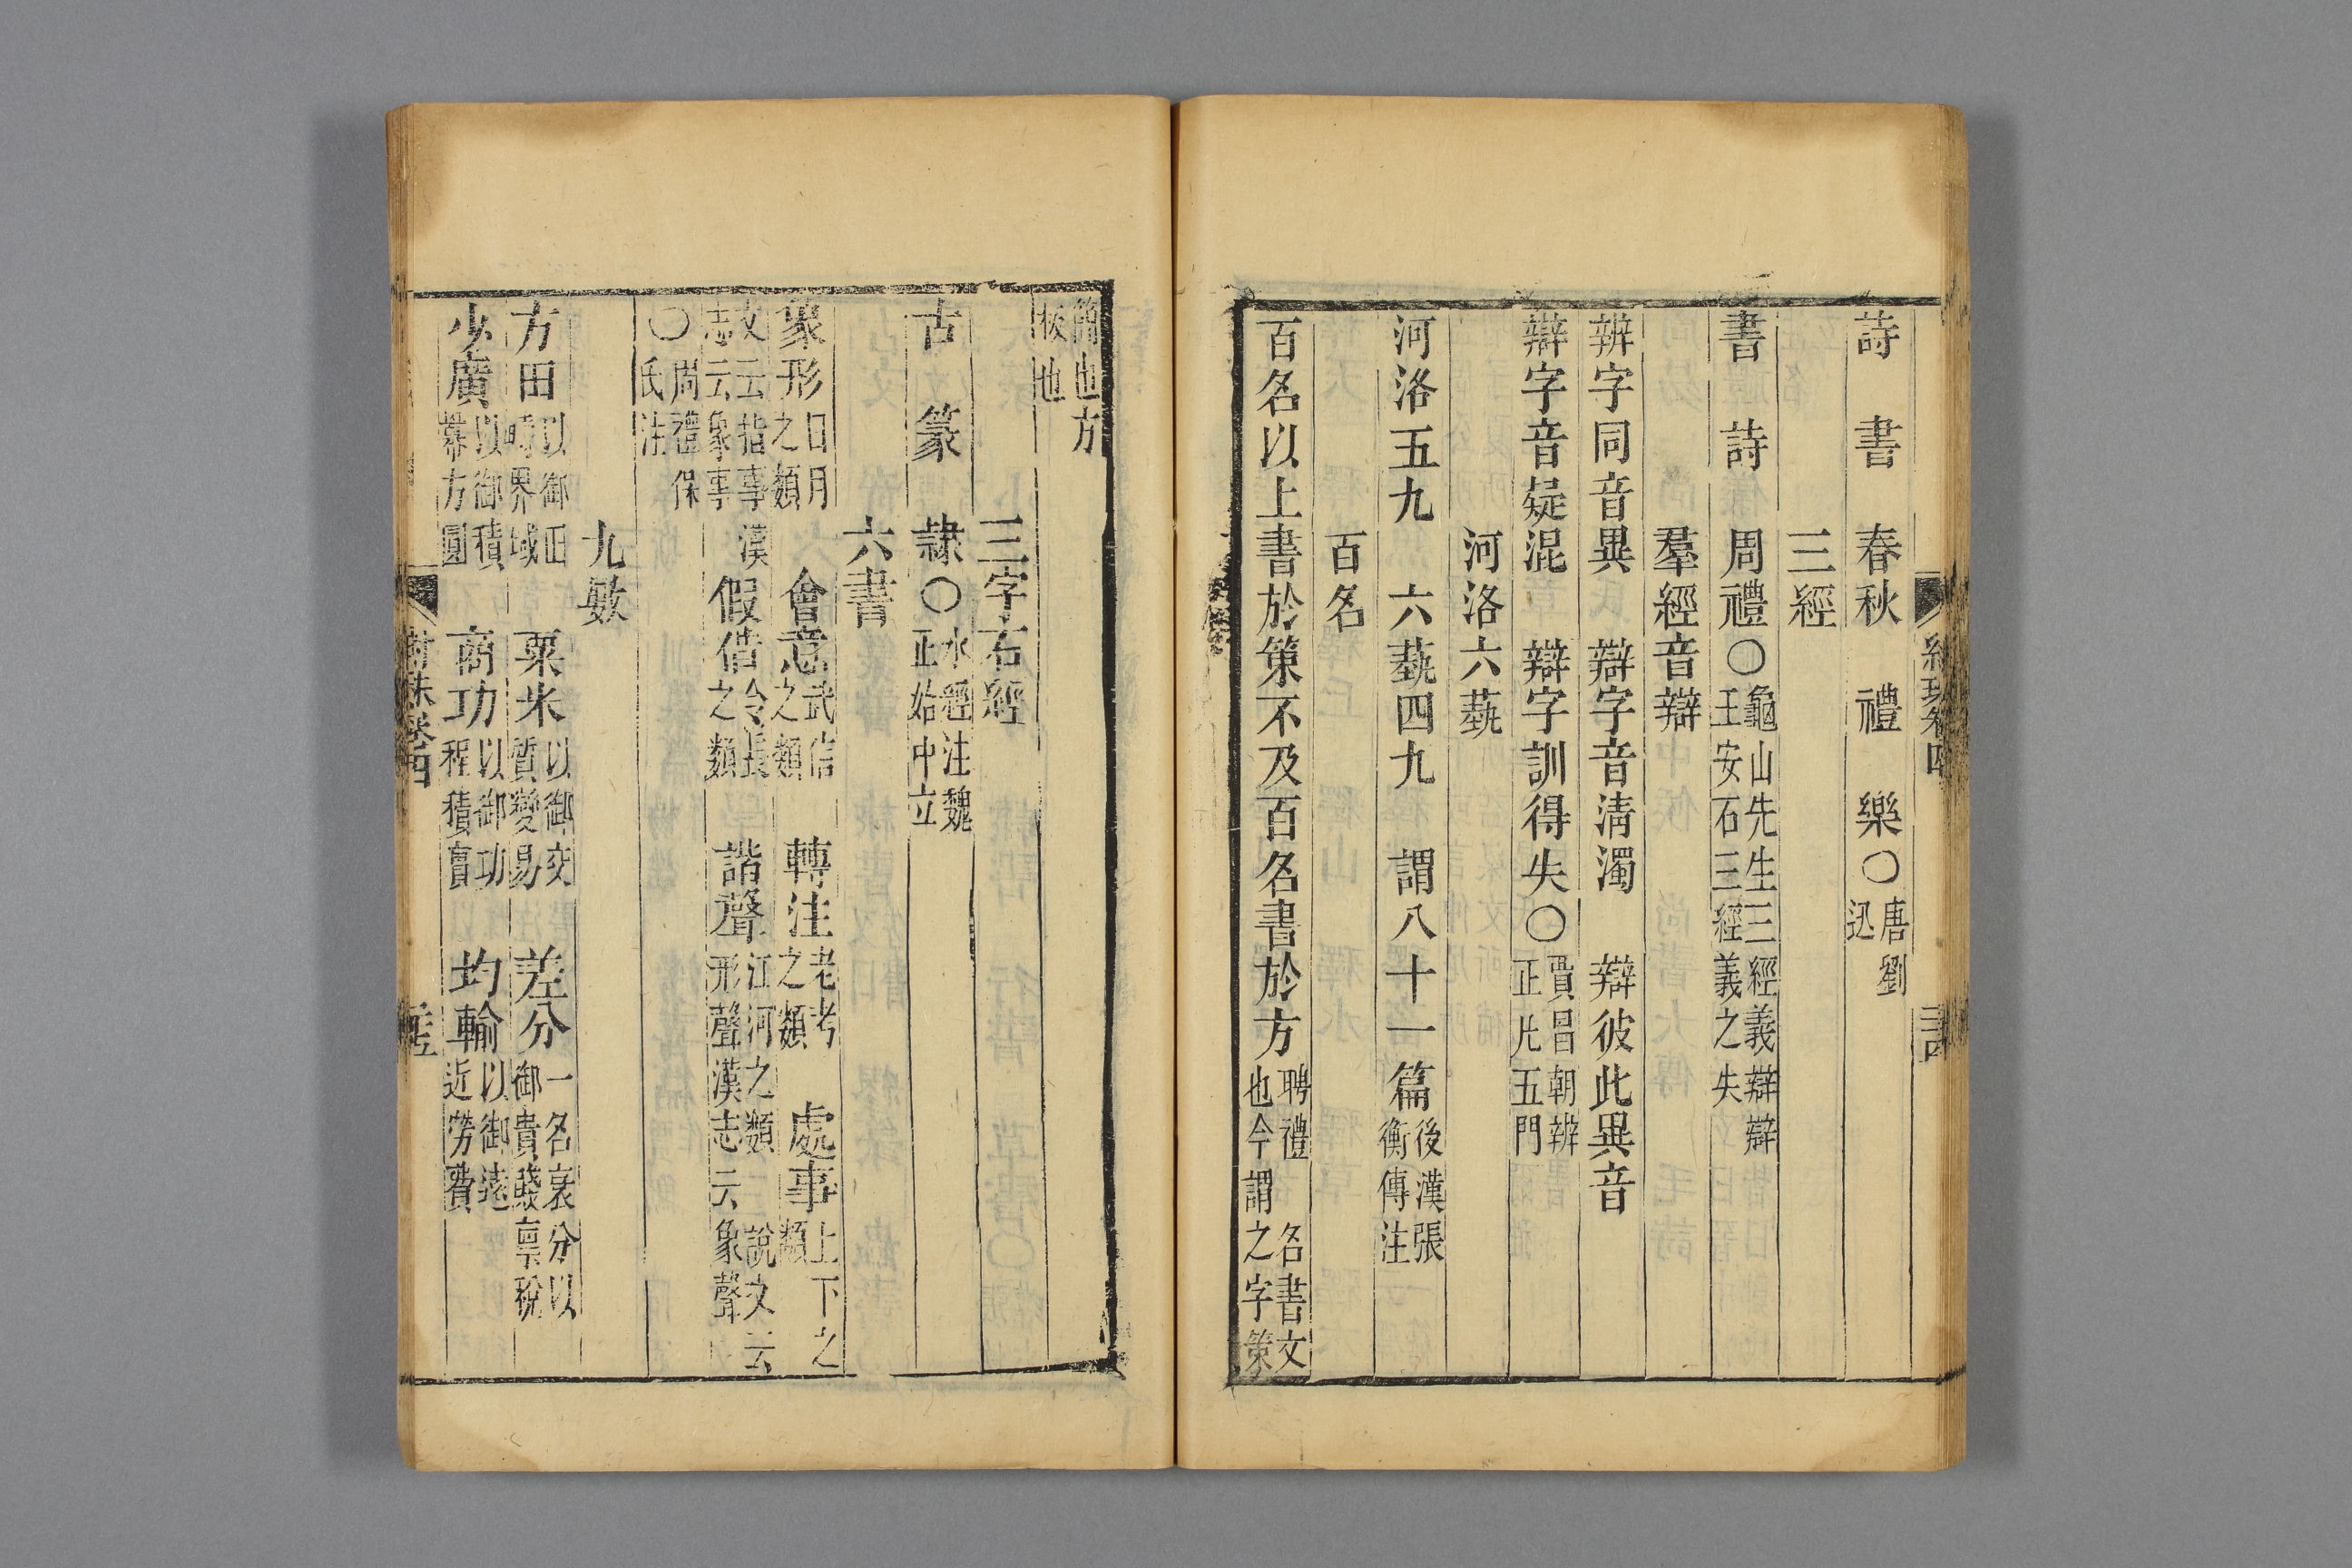 詩　書　春秋　禮　樂○唐劉迅
三經
書　詩　周禮○龜山先生三經義辯辯王安石三經義之失
羣經音辯
辨字同音異　辯字音清濁　辯彼此異音
辯字音疑混　辯字訓得失○賈昌朝辨正凡五門
河洛六蓺
河洛五九　六蓺四九　謂八十一篇後漢張衡傳注
百名
百名以上書於策不及百名書於方聘禮　名書文也今謂之字策
簡也方板也
三字石經
古　篆　隸○水經注魏正始中立
六書
象形日月之類　會意武信之類　轉注老考之類　處事上下之類
說文云指事漢志云象事　假借令長之類　諧聲江河之類　說文云形聲漢志云象聲
○周禮保氏注
九數
方田以御田疇界域　粟米以御交質變易　差分一名衰分以御貴賤稟稅
少廣以御積冪方圓　商功以御功程積實　均輸以御遠近勞費